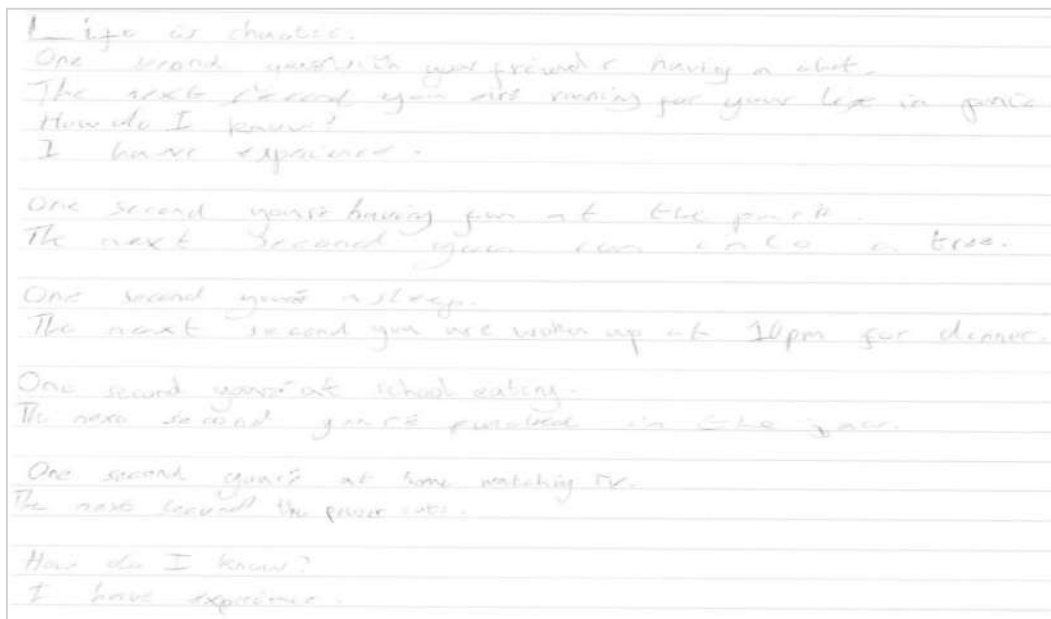 Life is chaotic.
One second your with your friends having a chat.
The next second you are running for your life in panic
How do I know?
I have experience.
One second your having fun at the park.
The next second you run into a tree.
One second your asleep.
The next second you are woken up at 10pm for dinner.
One second your at school eating.
The next second you're punched in the jaw.
One second you're at home watching TV.
The next second the power cuts.
How do I know?
I have experience.